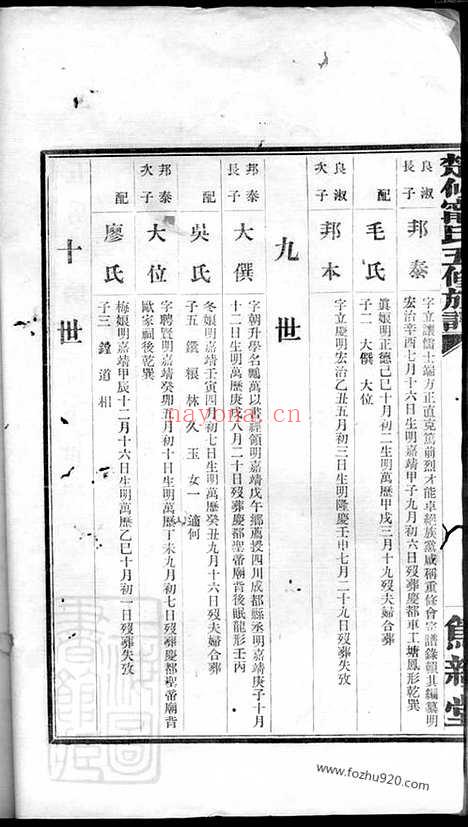 楚仙甯氏五修族譜
良淑
長子
邦泰
字立讓儒士端方正直克篤前烈才能卓絕族黨咸稱重修會宗譜錄賴其編纂明
宏治辛酉七月十六日生明嘉靖甲子九月初六日歿葬慶都車工塘鳳形乾巽
配
毛氏
眞娘明正德己巳十月初二生明萬歷甲戌三月十九歿夫婦合葬
子二 大僎 大位
良淑
次子
邦本
字立慶明宏治乙丑五月初三日生明隆慶壬申七月二十九日歿葬失攷
九世
邦泰
長子
大僎
字朝升學名鶚萬以書經領明嘉靖戊午鄉薦授四川成都縣丞明嘉靖庚子十月
十二日生明萬歷庚戌八月二十日歿葬慶都聖帝廟背後眠龍形壬丙
配
吳氏
冬娘明嘉靖壬寅四月初七日生明萬歷癸丑九月十六日歿夫婦合葬
子五 鐵 根 林 久 玉 女一 適何
邦泰
次子
大位
字聘賢明嘉靖癸卯五月初十日生明萬歷丁未九月初七日歿葬慶都聖帝廟背
歐家祠後乾巽
配
廖氏
梅娘明嘉靖甲辰十二月十六日生明萬歷乙巳十月初一日歿葬失攷
子三 鏜 道 相
十世
nayona.cn
www.fozhu920.com